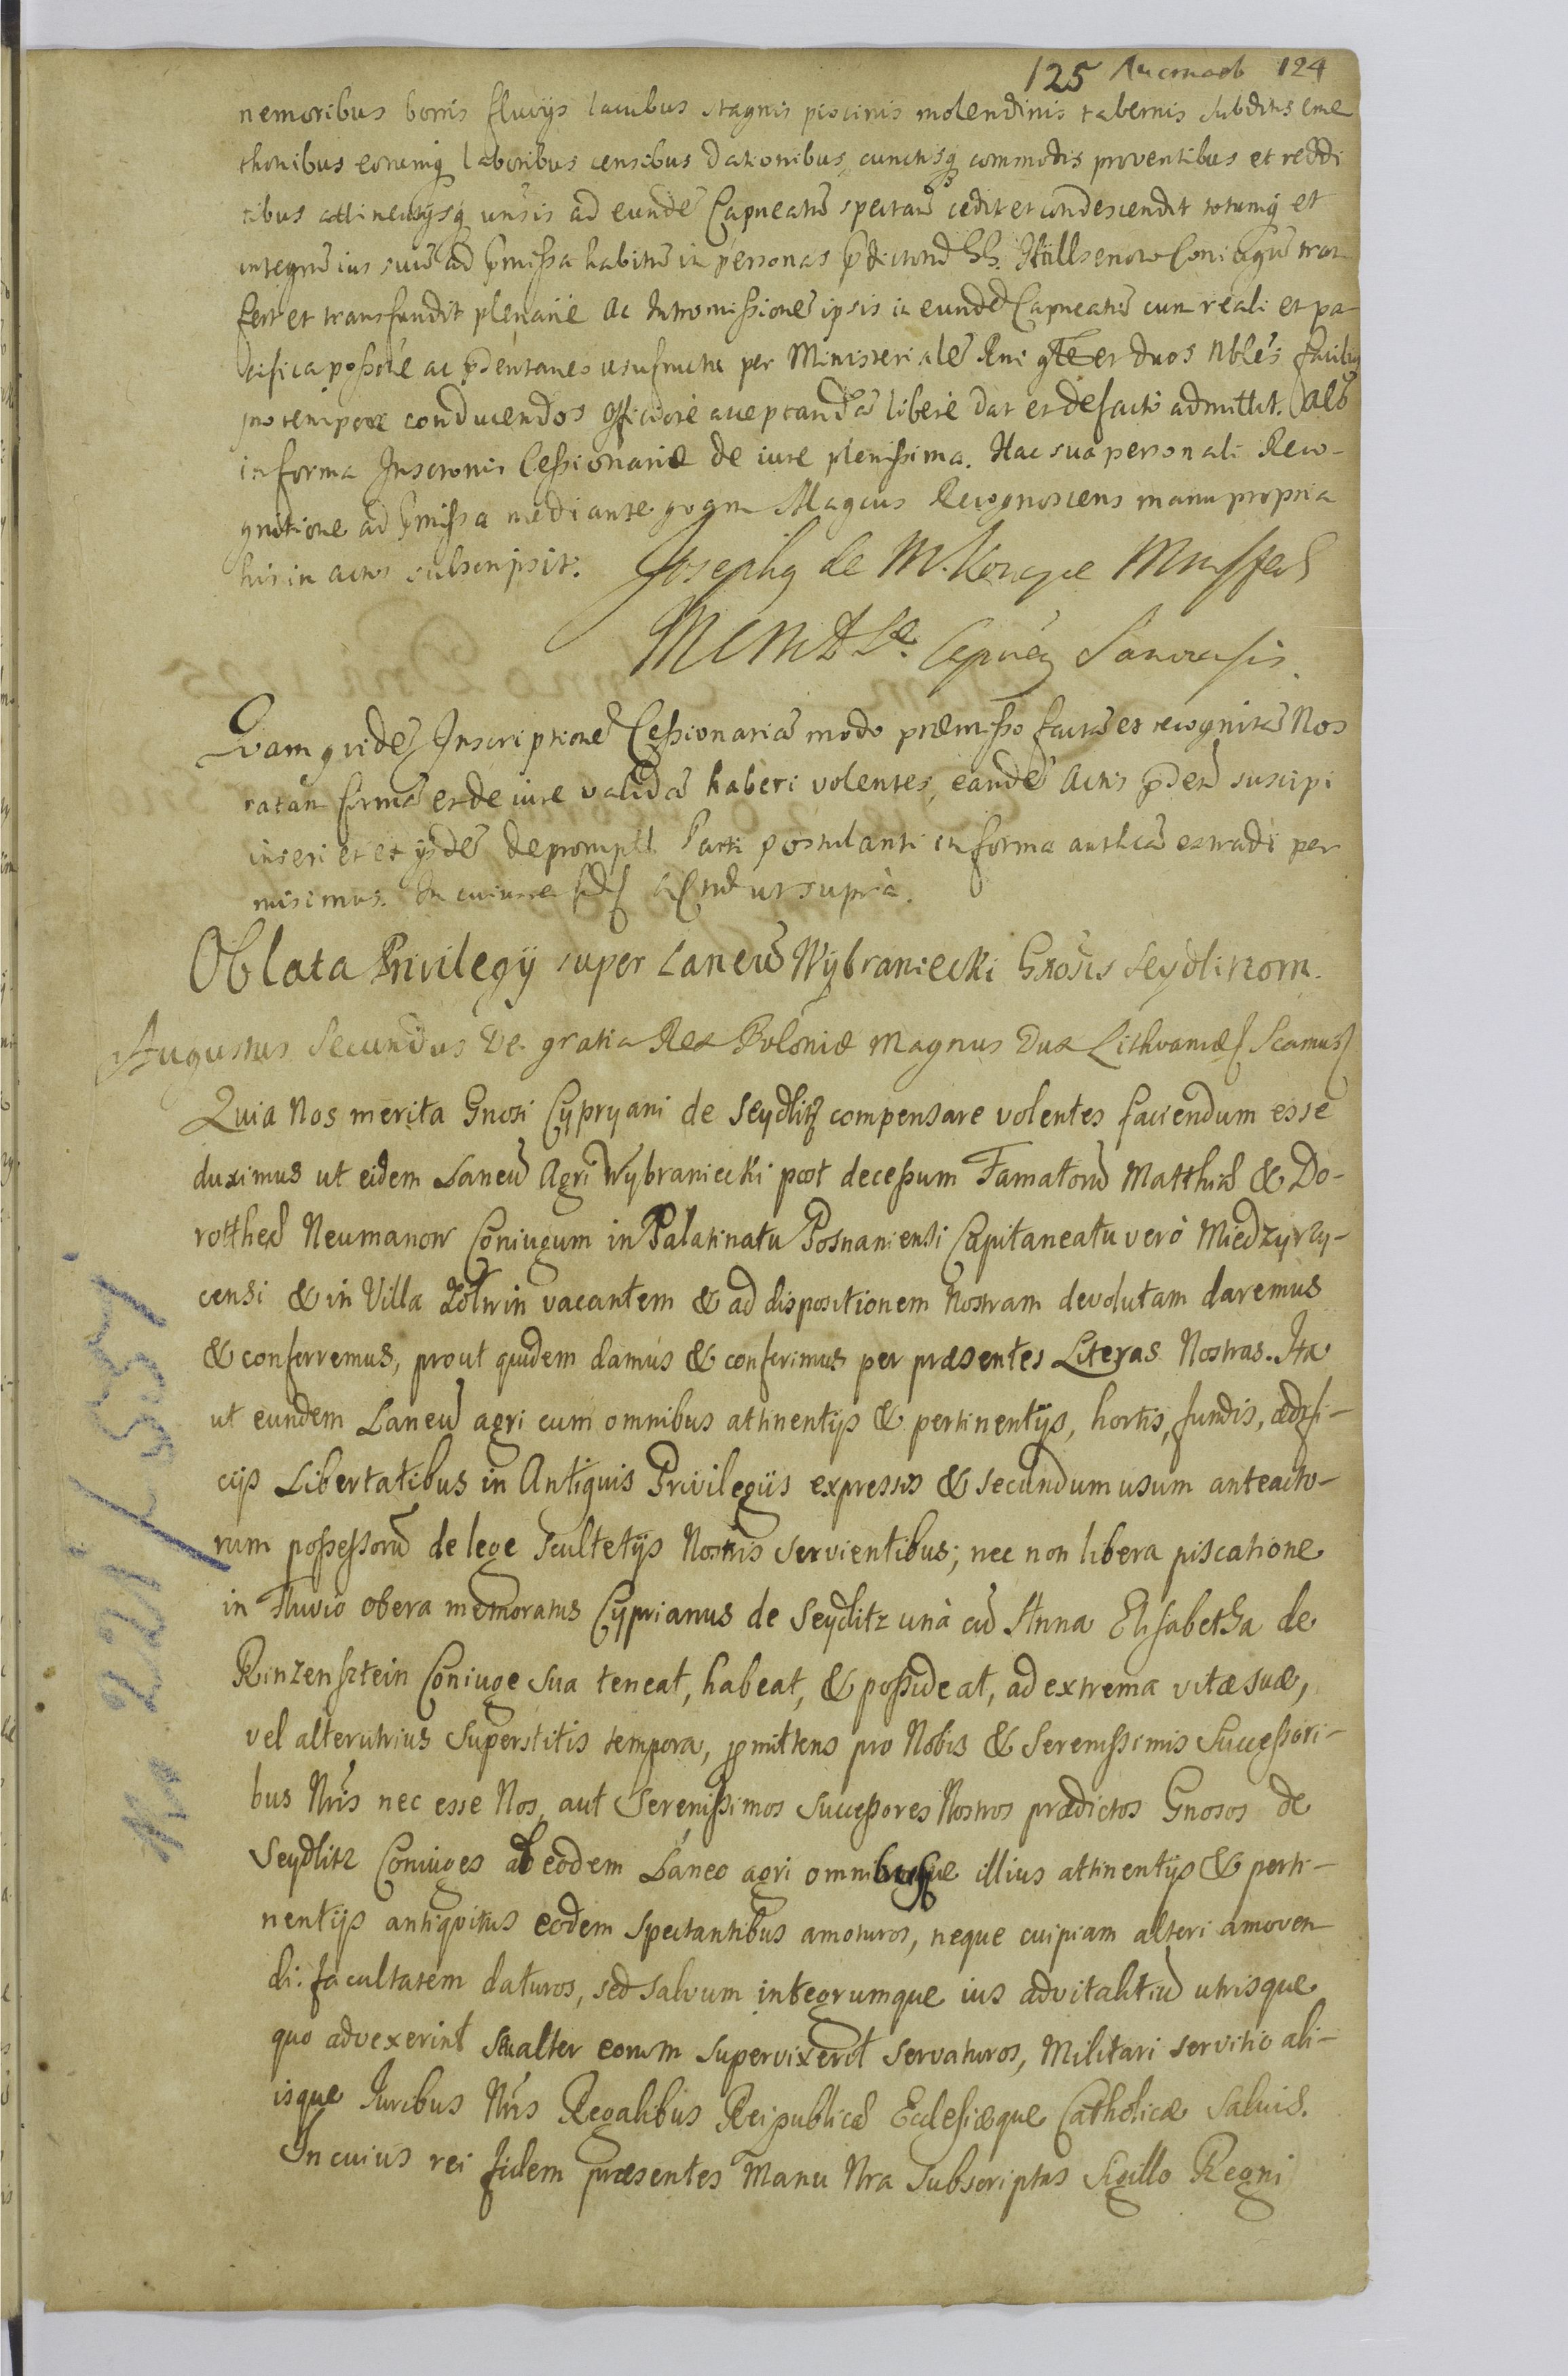 125 Листовъ 124
nemoribus borris fluvijs lacubus stagnis piscinis molendinis tabernis subditis cme
thonibus eorumq laboribus censibus dationibus cunctisq commodis proventibus et reddi
tibus attinentijsq unsis ad eundē Capneatū spectan̄ cedit et condescendit totumq et
integrū ius suū ad p̄missa habitū in personas p̄dictorū Coniugū trans
fert et transfundit plenarie ac Intromissionē ipsis in eundē Capneatū cum reali et pa
cifica possōne ac p̄dentaneo usufructu per Ministerialē Rni gn̄lē et duos Nblēs
suo tempore conducendos officiose acceptandā libere dat et de facto admittit.
in forma Inscronis Cessionariæ de iure plenissima. Hac sua personali Reco-
gnitione ad p̄missa mediante Magcus Recognoscens manu propria
his in actis subscripsit. Josephq de M.
Capnēq Sanocensis.
Quam quidē Inscriptionē Cessionariā modo præmisso factā et recognitā Nos
ratam firmā et de iure validā haberi volentes, eandē Actis p̄dent suscipi
inseri et ex ijsdē depromptt Parti postulanti in forma authcā extradi per
misimus. In cuius rei fidē Act ut supra.
Oblata Privilegÿ super Laneū Wÿbraniecki Gnosis Seÿdlitzom.
Augustus Secundus De gratia Rex Poloniæ Magnus Dux Lithvaniæ Scamus
Quia Nos merita Gnosi Cÿprÿani de Seÿdlitz compensare volentes faciendum esse
duximus ut eidem Laneū Agri Wÿbraniecki post decessum Famatorū Matthiæ & Do-
rotheæ Neumanow Coniugum in Palatinatu Posnaniensi Capitaneatu vero Miedzyrzy-
censi & in Villa Zołwin vacantem & ad dispositionem Nostram devolutam daremus
& conferremus, prout quidem damus & conferimus per præsentes Literas Nostras. Ita
ut eundem Laneū agri cum omnibus attinentijs & pertinentijs, hortis, fundis, ædifi-
cijs Libertatibus in Antiquis Privilegiis expressis & secundum usum anteacto-
rum possessorū de lege Scultetijs Nostris servientibus; nec non libera piscatione
in Fluvio Obera memoratus Cÿprianus de Seÿdlitz unà cū Anna Elisabetha de
Rinzensztein Coniuge sua teneat, habeat, & possideat, ad extrema vitæ suæ,
vel alterutrius superstitis tempora, p̱mittens pro Nobis & Serenissimis Successori-
bus Nris nec esse Nos, aut Serenissimos Successores Nostros prædictos Gnosos de
Seÿdlitz Coniuges ab eodem Laneo agri omnibusque illius attinentijs & perti-
nentijs antiquitus eodem spectantibus amoturos, neque cuipiam alteri amoven-
di facultatem daturos, sed salvum integrumque ius advitalitiū utrisque
quo advexerint seu alter eorum supervixerit servaturos, Militari servitio ali-
isque Iuribus Nris Regalibus Reipublicæ Ecclesiæque Catholicæ salvis.
In cuius rei fidem præsentes Manu Nra subscriptas Sigillo Regni